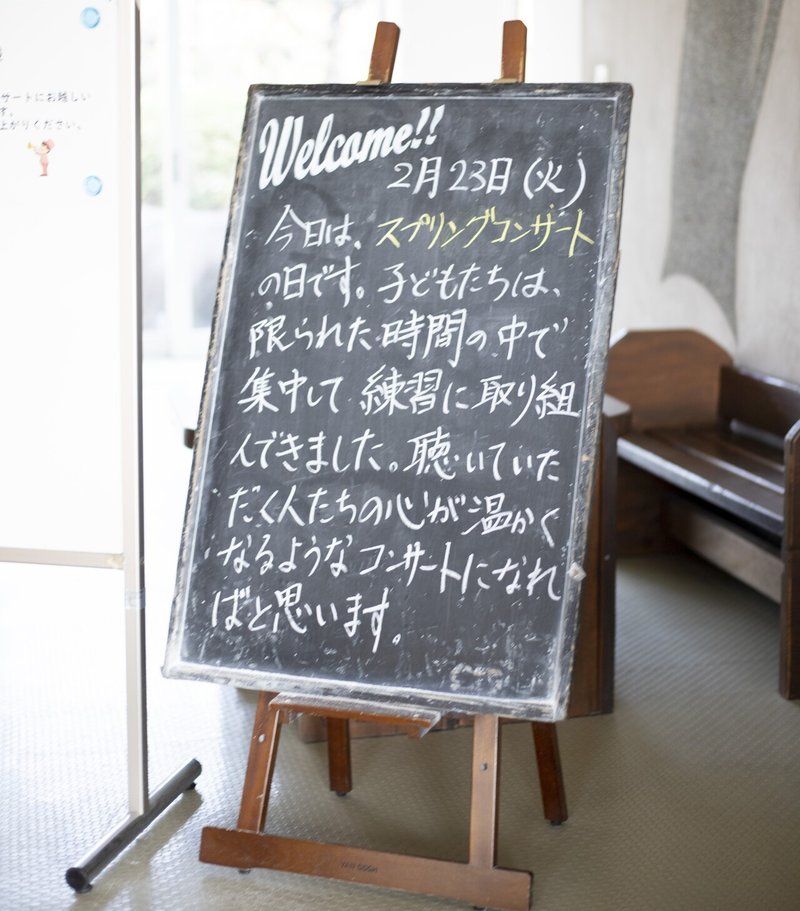 サートにお越しい
す。
上がりください。
Welcome!!
2月23日(火)
今日は、スプリングコンサート
の日です。子どもたちは、
限られた時間の中で
集中して練習に取り組
んできました。聴いていた
だく人たちの心が温かく
なるようなコンサートになれ
ばと思います。